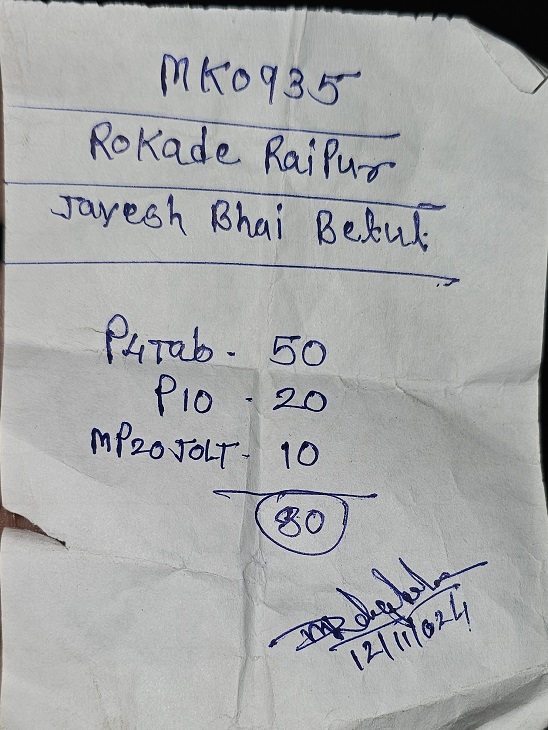 MK0935
Rokade Raipur
Jayesh Bhai Betul
P4Tab - 50
P10 - 20
MP20JOLT - 10
80
12/11/024